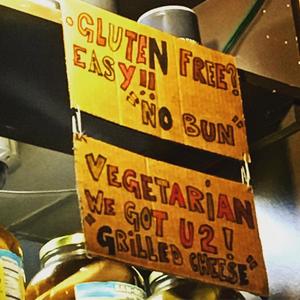 .GLUTEN FREE?
EASY!!
"NO BUN"
VEGETARIAN
WE GOT U2!
"GRILLED CHEESE"